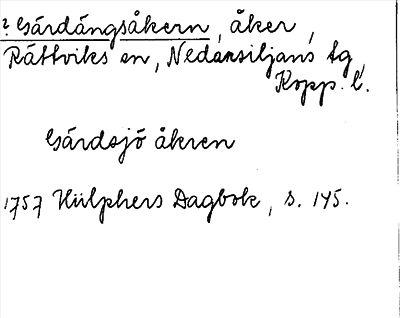 ? Gärdängsåkern, åker,
Rättviks sn, Nedansiljans tg,
Kopp. l.
Gärdsjö åkren
1757 Hülphers Dagbok, s. 145.